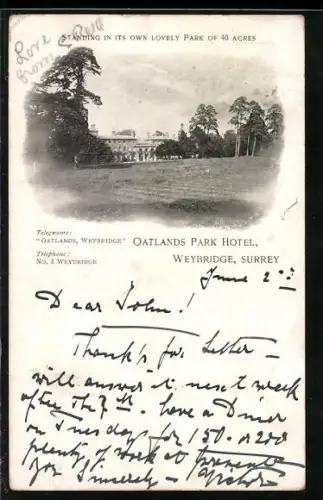 STANDING IN ITS OWN LOVELY PARK OF 40 ACRES
Love
from
Telegrams:
"OATLANDS, WEYBRIDGE"
Telephone:
No. 8 WEYBRIDGE
OATLANDS PARK HOTEL,
WEYBRIDGE, SURREY
June 2nd
Dear John!
Thank's for Letter –
will answer it next week
after the 7th. have a Diner
on Tuesday for 150 or 200
plenty of work at present
Yours Sincerely –